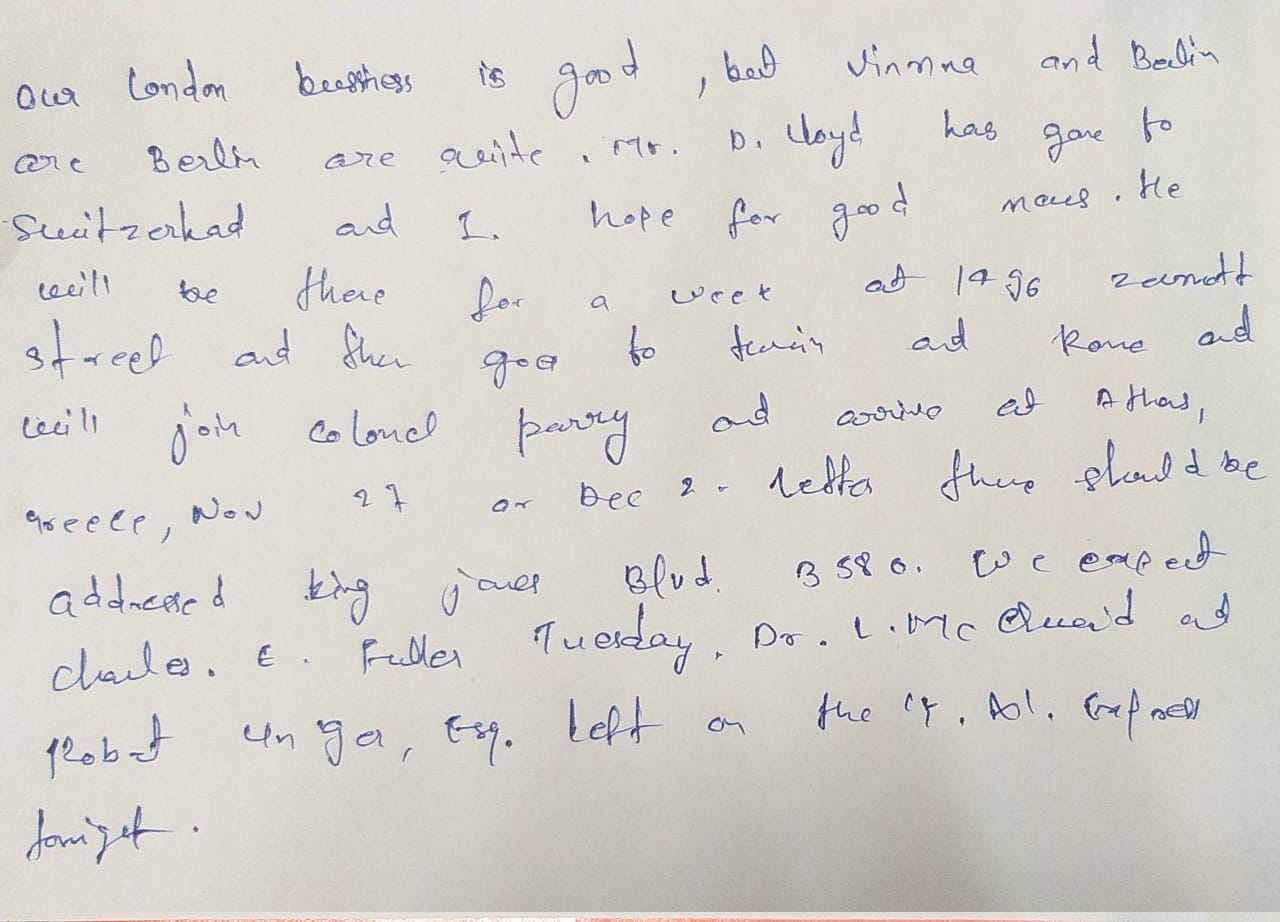 our London bussness is good, but Vinnna and Berlin
are Berlin are quite. Mr. D. Lloyd has gone to
Switzerkad and I. hope for good news. He
will be there for a week at 1496 zermott
street and then goes to turin and Rome and
will join colonel parry and arrive at Athens,
greece, Nov 27 or Dec 2. Letter there should be
addressed king james Blvd. 3580. We expect
charles. E. Fuller Tuesday. Dr. L. Mc Quaid and
Robert Unger, Esq. Left on the Express
tonight.